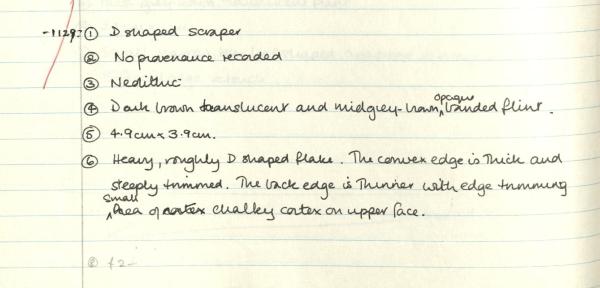 -1129: ① D shaped scraper
② No provenance recorded
③ Neolithic
④ Dark brown translucent and midgrey-brown opaque banded flint.
⑤ 4.9cm x 3.9cm.
⑥ Heavy, roughly D shaped flake. The convex edge is thick and
steeply trimmed. The back edge is thinner with edge trimming
small Area of cortex chalkey cortex on upper face.
⑧ £2-